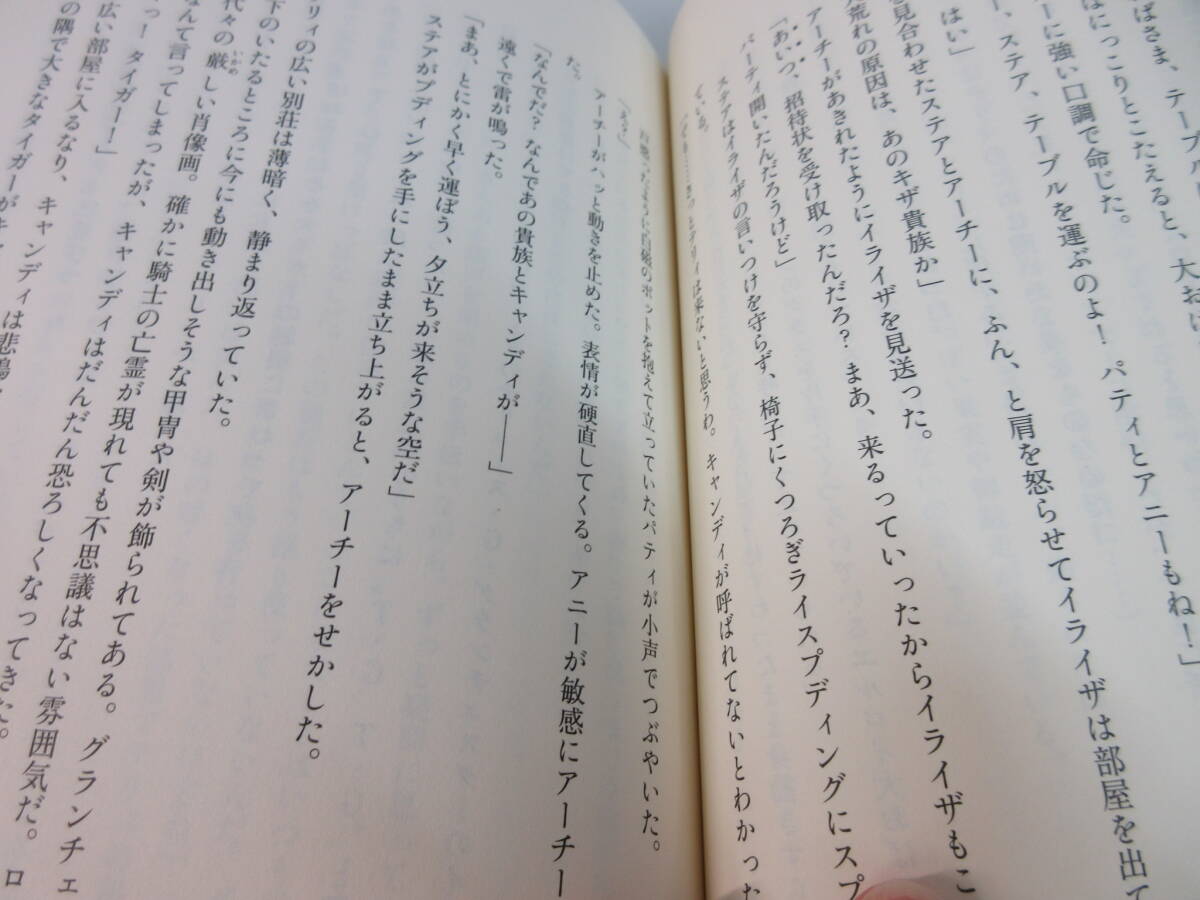 ばさま、テーブル
はにっこりとこたえると、大おば
ーに強い口調で命じた。
ー、ステア、テーブルを運ぶのよ！　パティとアニーもね！」
はい」
を見合わせたステアとアーチーに、ふん、と肩を怒らせてイライザは部屋を出て
荒れの原因は、あのキザ貴族か」
アーチーがあきれたようにイライザを見送った。
「あいつ、招待状を受け取ったんだろ？　まあ、来るっていったからイライザもこ
パーティ開いたんだろうけど」
ステアはイライザの言いつけを守らず、椅子にくつろぎライスプディングにスプ
ている。
とテリィは来ないと思うわ。キャンディが呼ばれてないとわかった
ように白磁のポットを抱えて立っていたパティが小声でつぶやいた。
「えっ」
アーチーがハッと動きを止めた。表情が硬直してくる。アニーが敏感にアーチー
た。
「なんでだ？　なんであの貴族とキャンディが――」
遠くで雷が鳴った。
「まあ、とにかく早く運ぼう、夕立ちが来そうな空だ」
ステアがプディングを手にしたまま立ち上がると、アーチーをせかした。
リィの広い別荘は薄暗く、静まり返っていた。
下のいたるところに今にも動き出しそうな甲冑や剣が飾られてある。グランチェ
代々の厳いかめしい肖像画。確かに騎士の亡霊が現れても不思議はない雰囲気だ。　ロ
なんて言ってしまったが、キャンディはだんだん恐ろしくなってきた。
っ！　タイガー！」
広い部屋に入るなり、キャンディは悲鳴
の隅で大きなタイガーがキ